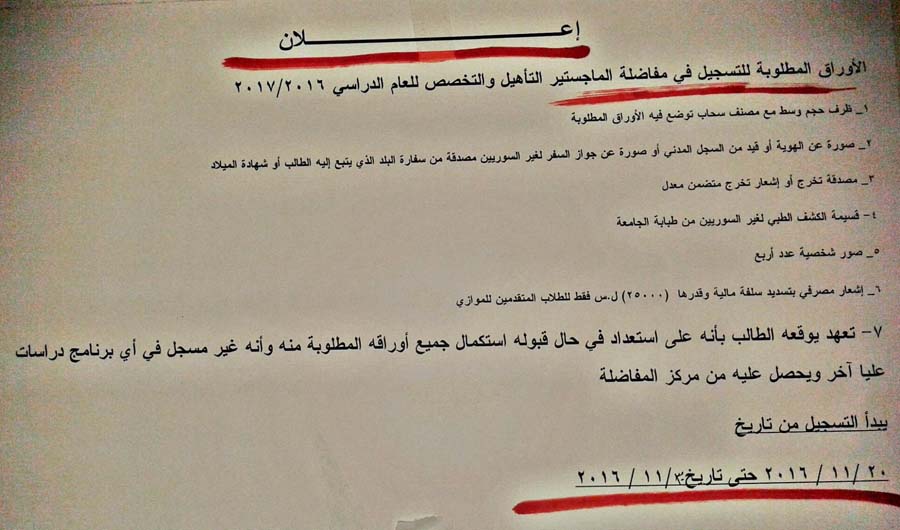 إعـــــــــــــــــــــلان
الأوراق المطلوبة للتسجيل في مفاضلة الماجستير التأهيل والتخصص للعام الدراسي ٢٠١٧/٢٠١٦
١_ ظرف حجم وسط مع مصنف سحاب توضع فيه الأوراق المطلوبة
٢_ صورة عن الهوية أو قيد من السجل المدني أو صورة عن جواز السفر لغير السوريين مصدقة من سفارة البلد الذي يتبع إليه الطالب أو شهادة الميلاد
٣_ مصدقة تخرج أو إشعار تخرج متضمن معدل
٤- قسيمة الكشف الطبي لغير السوريين من طبابة الجامعة
٥_ صور شخصية عدد أربع
٦_ إشعار مصرفي بتسديد سلفة مالية وقدرها (٢٥٠٠٠) ل.س فقط للطلاب المتقدمين للموازي
٧- تعهد يوقعه الطالب بأنه على استعداد في حال قبوله استكمال جميع أوراقه المطلوبة منه وأنه غير مسجل في أي برنامج دراسات
عليا آخر ويحصل عليه من مركز المفاضلة
يبدأ التسجيل من تاريخ
٢٠ /١١ / ٢٠١٦ حتى تاريخ: /١١ / ٢٠١٦